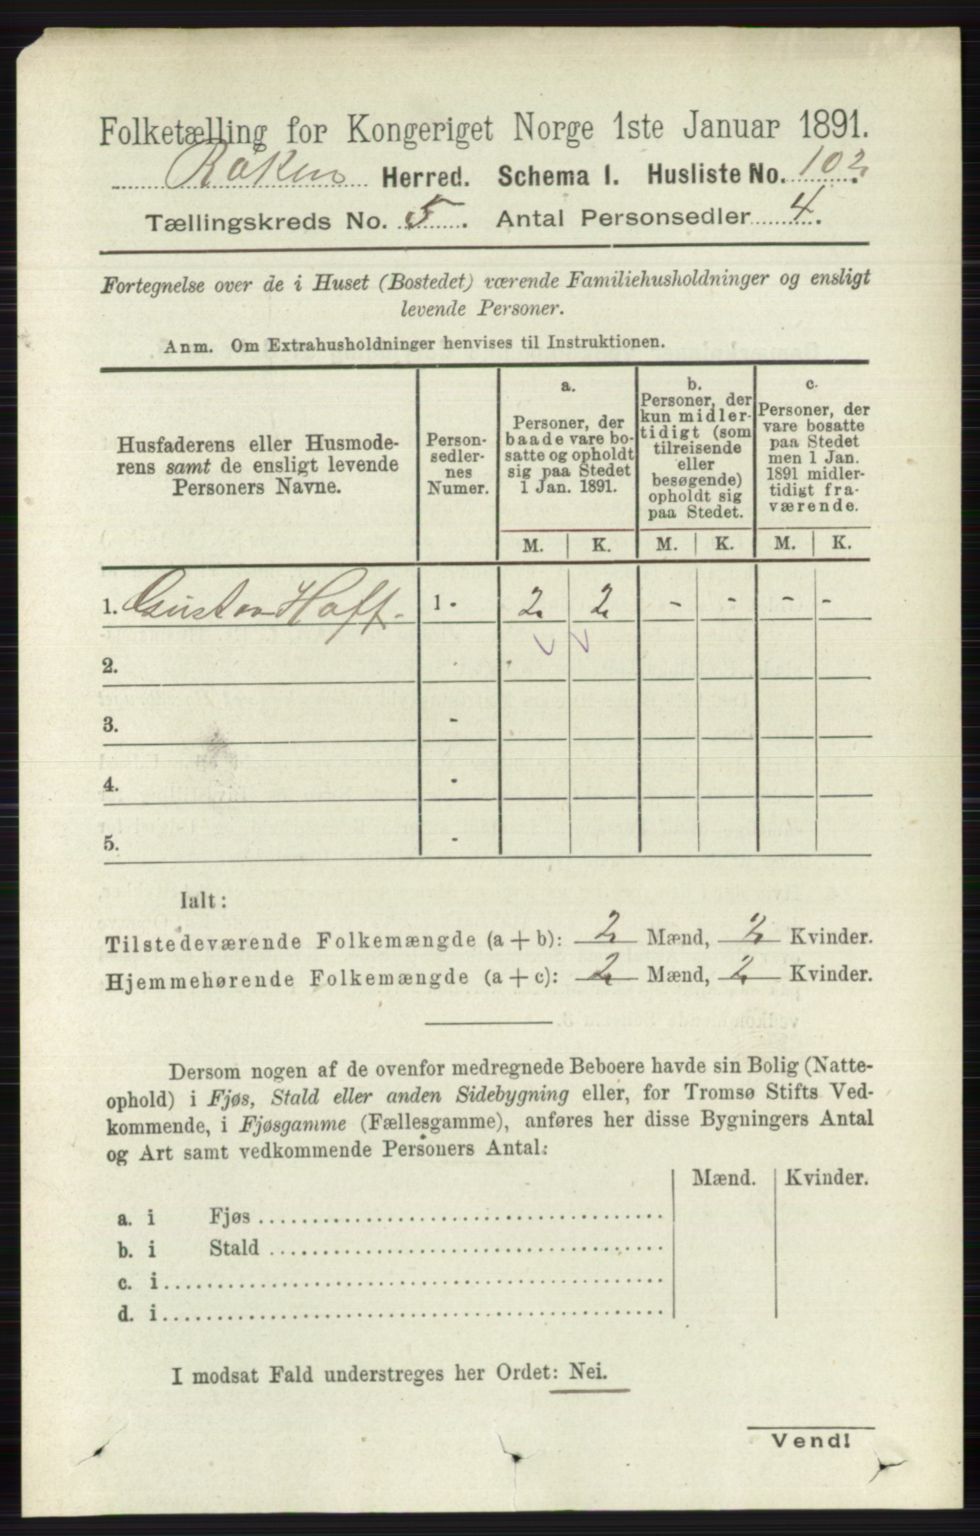 Folketælling for Kongeriget Norge 1ste Januar 1891.
Røken Herred. Schema 1. Husliste No. 102.
Tællingskreds No. 5. Antal Personsedler 4.
Fortegnelse over de i Huset (Bostedet) værende Familiehusholdninger og ensligt
levende Personer.
Anm. Om Extrahusholdninger henvises til Instruktionen.
Husfaderens eller Husmode-
rens samt de ensligt levende
Personers Navne.
Person-
sedler-
nes
Numer.
a.
Personer, der
baade vare bo-
satte og opholdt
sig paa Stedet
1 Jan. 1891.
b.
Personer, der
kun midler-
tidigt (som
tilreisende
eller
besøgende)
opholdt sig
paa Stedet.
c.
Personer, der
vare bosatte
paa Stedet
men 1 Jan.
1891 midler-
tidigt fra-
værende.
M. K. M. K. M. K.
1. Gustav Hoff. 1 - 2 2 - - - -
2.
3. -
4. -
5. -
Ialt:
Tilstedeværende Folkemængde (a + b): 2 Mænd, 2 Kvinder.
Hjemmehørende Folkemængde (a + c): 2 Mænd, 2 Kvinder.
Dersom nogen af de ovenfor medregnede Beboere havde sin Bolig (Natte-
ophold) i Fjøs, Stald eller anden Sidebygning eller, for Tromsø Stifts Ved-
kommende, i Fjøsgamme (Fællesgamme), anføres her disse Bygningers Antal
og Art samt vedkommende Personers Antal:
Mænd. Kvinder.
a. i Fjøs
b. i Stald
c. i
d. i
I modsat Fald understreges her Ordet: Nei.
Vend!